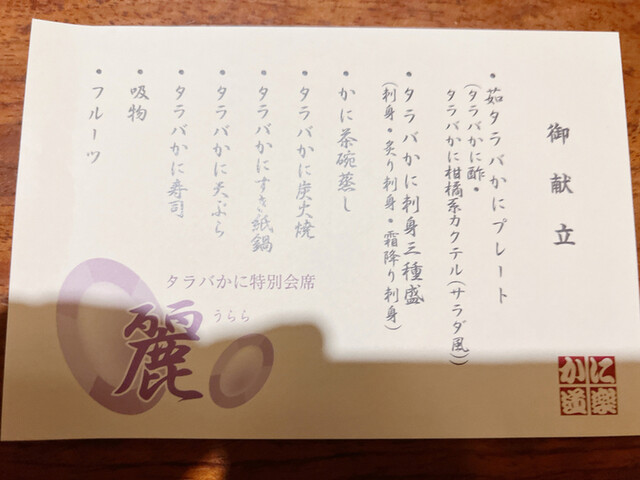 御献立
・茹タラバかにプレート
(タラバかに酢・
タラバかに柑橘系カクテル(サラダ風))
・タラバかに刺身三種盛
(刺身・炙り刺身・霜降り刺身)
・かに茶碗蒸し
・タラバかに炭火焼
・タラバかにすき紙鍋
・タラバかに天ぷら
・タラバかに寿司
・吸物
・フルーツ
タラバかに特別会席
麗
うらら
かに
道楽